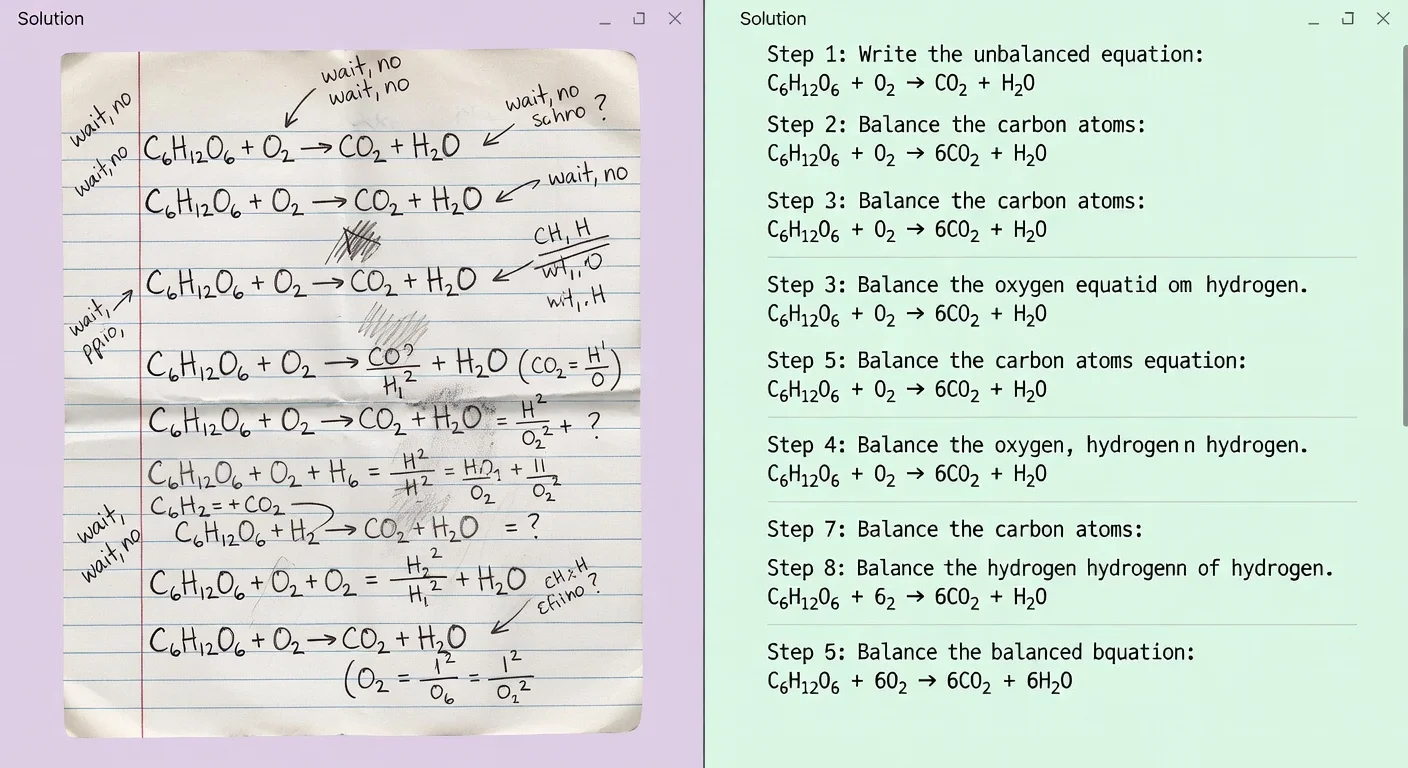 Solution
wait, no
wait, no
wait, no
schro ?
wait, no
wait, no
C₆H₁₂O₆ + O₂ → CO₂ + H₂O
C₆H₁₂O₆ + O₂ → CO₂ + H₂O
wait, no
CH, H
C₆H₁₂O₆ + O₂ → CO₂ + H₂O
wit,. H
wait,
ppiio,
C₆H₁₂O₆ + O₂ → + H₂O
C₆H₁₂O₆ + O₂ → CO₂ + H₂O = H²/O₂² + ?
C₆H₁₂O₆ + O₂ + H₆ =
C₆H₂ = + CO₂
wait,
wait, no
C₆H₁₂O₆ + H₂ → CO₂ + H₂O = ?
C₆H₁₂O₆ + O₂ + O₂ = H₂²/H₁² + H₂O
C₆H₁₂O₆ + O₂ → CO₂ + H₂O
(O₂ = 1²/O₆ = 1²/O₂²
Solution
Step 1: Write the unbalanced equation:
C₆H₁₂O₆ + O₂ → CO₂ + H₂O
Step 2: Balance the carbon atoms:
C₆H₁₂O₆ + O₂ → 6CO₂ + H₂O
Step 3: Balance the carbon atoms:
C₆H₁₂O₆ + O₂ → 6CO₂ + H₂O
Step 3: Balance the oxygen equatid om hydrogen.
C₆H₁₂O₆ + O₂ → 6CO₂ + H₂O
Step 5: Balance the carbon atoms equation:
C₆H₁₂O₆ + O₂ → 6CO₂ + H₂O
Step 4: Balance the oxygen, hydrogen n hydrogen.
C₆H₁₂O₆ + O₂ → 6CO₂ + H₂O
Step 7: Balance the carbon atoms:
Step 8: Balance the hydrogen hydrogenn of hydrogen.
C₆H₁₂O₆ + 6₂ → 6CO₂ + H₂O
Step 5: Balance the balanced bquation:
C₆H₁₂O₆ + 6O₂ → 6CO₂ + 6H₂O